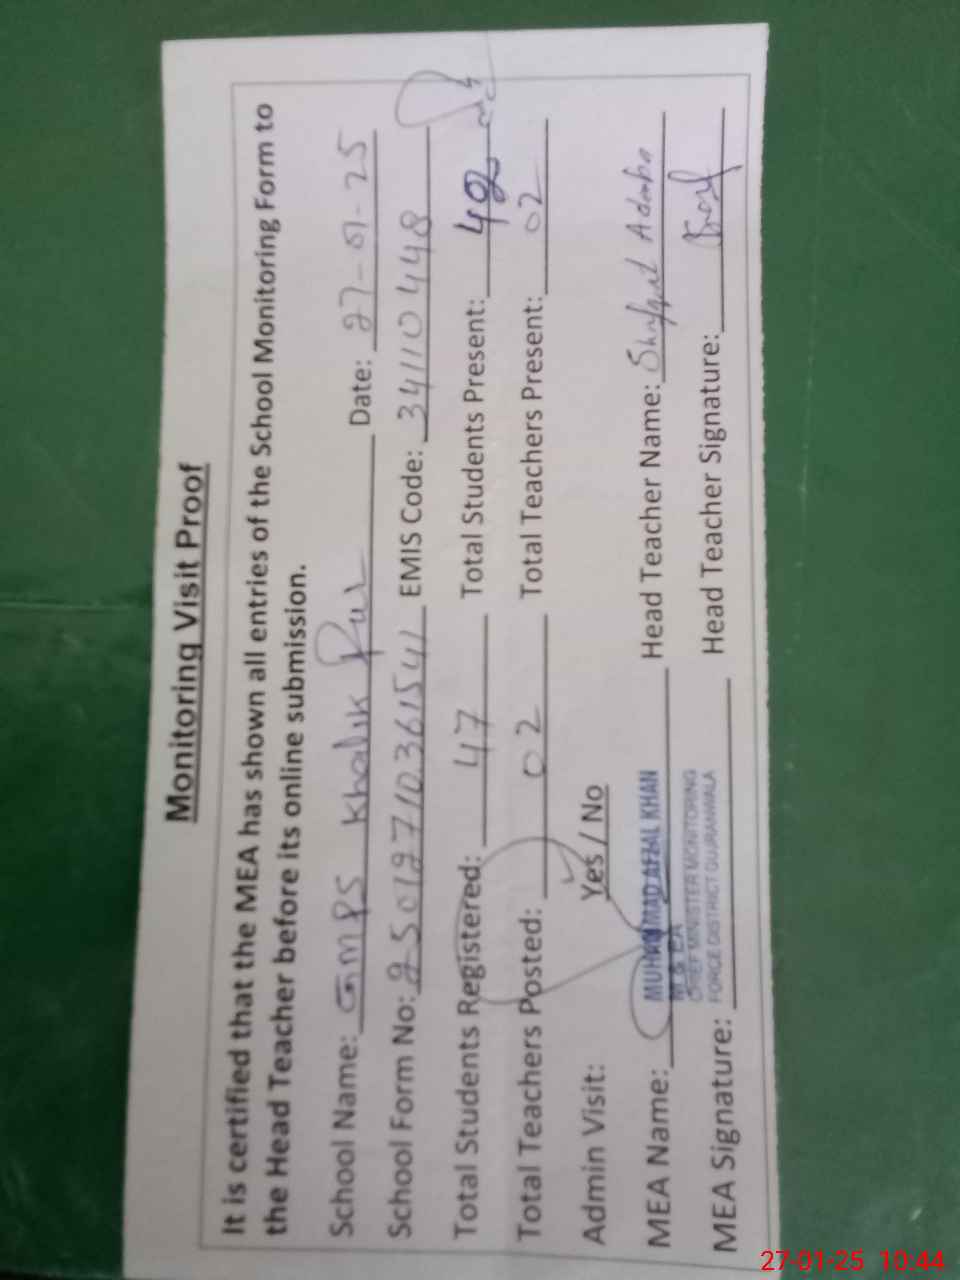 Monitoring Visit Proof
It is certified that the MEA has shown all entries of the School Monitoring Form to
the Head Teacher before its online submission.
School Name: GMPS Khalik Pur Date: 27-01-25
School Form No: 250127103361541 EMIS Code: 34110448
Total Students Registered: 47 Total Students Present: 40
Total Teachers Posted: 02 Total Teachers Present: 02
Admin Visit: Yes / No
MEA Name: MUHAMMAD AFZAL KHAN Head Teacher Name: Shafqat
M & EA
CHIEF MINISTER MONITORING
FORCE DISTRICT GUJRANWALA
MEA Signature: Head Teacher Signature:
27-01-25 10:44